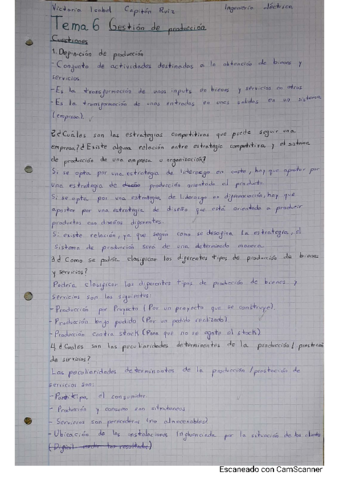 Victoria Isabel Capitán Ruiz Ingeniería Eléctrica
Tema 6 Gestión de producción
Cuestiones
1. Definición de producción
- Conjunto de actividades destinadas a la obtención de bienes y
servicios.
- Es la transformación de unos inputs de bienes y servicios en otros
- Es la transformación de unas entradas en unas salidas en un sistema
(empresa).
2. ¿Cuáles son las estrategias competitivas que puede seguir una
empresa? ¿Existe alguna relación entre estrategia competitiva y el sistema
de producción de una empresa u organización?
Si se opta por una estrategia de liderazgo en coste, hay que apostar por
una estrategia de producción orientada al producto.
Si se opta por una estrategia de liderazgo en diferenciación, hay que
apostar por una estrategia de diseño que esté orientada a producir
productos con diseños diferentes.
Si existe relación, ya que según como se defina la estrategia, el
sistema de producción será de una determinada manera.
3. ¿Como se podría clasificar los diferentes tipos de producción de bienes
y servicios?
Podría clasificar los diferentes tipos de producción de bienes y
servicios son los siguientes
- Producción por Proyecto (Por un proyecto que se construye)
- Producción bajo pedido (Por un pedido realizado)
- Producción contra stock (Para que no se agote el stock)
4. ¿Cuáles son las peculiaridades determinantes de la producción/prestación
de servicios?
Las peculiaridades determinantes de la producción/prestación de
servicios son:
- Participa el consumidor
- Producción y consumo son simultáneos
- Servicios son perecederos (no almacenables)
- Ubicación de las instalaciones influenciada por la del cliente
Escaneado con CamScanner